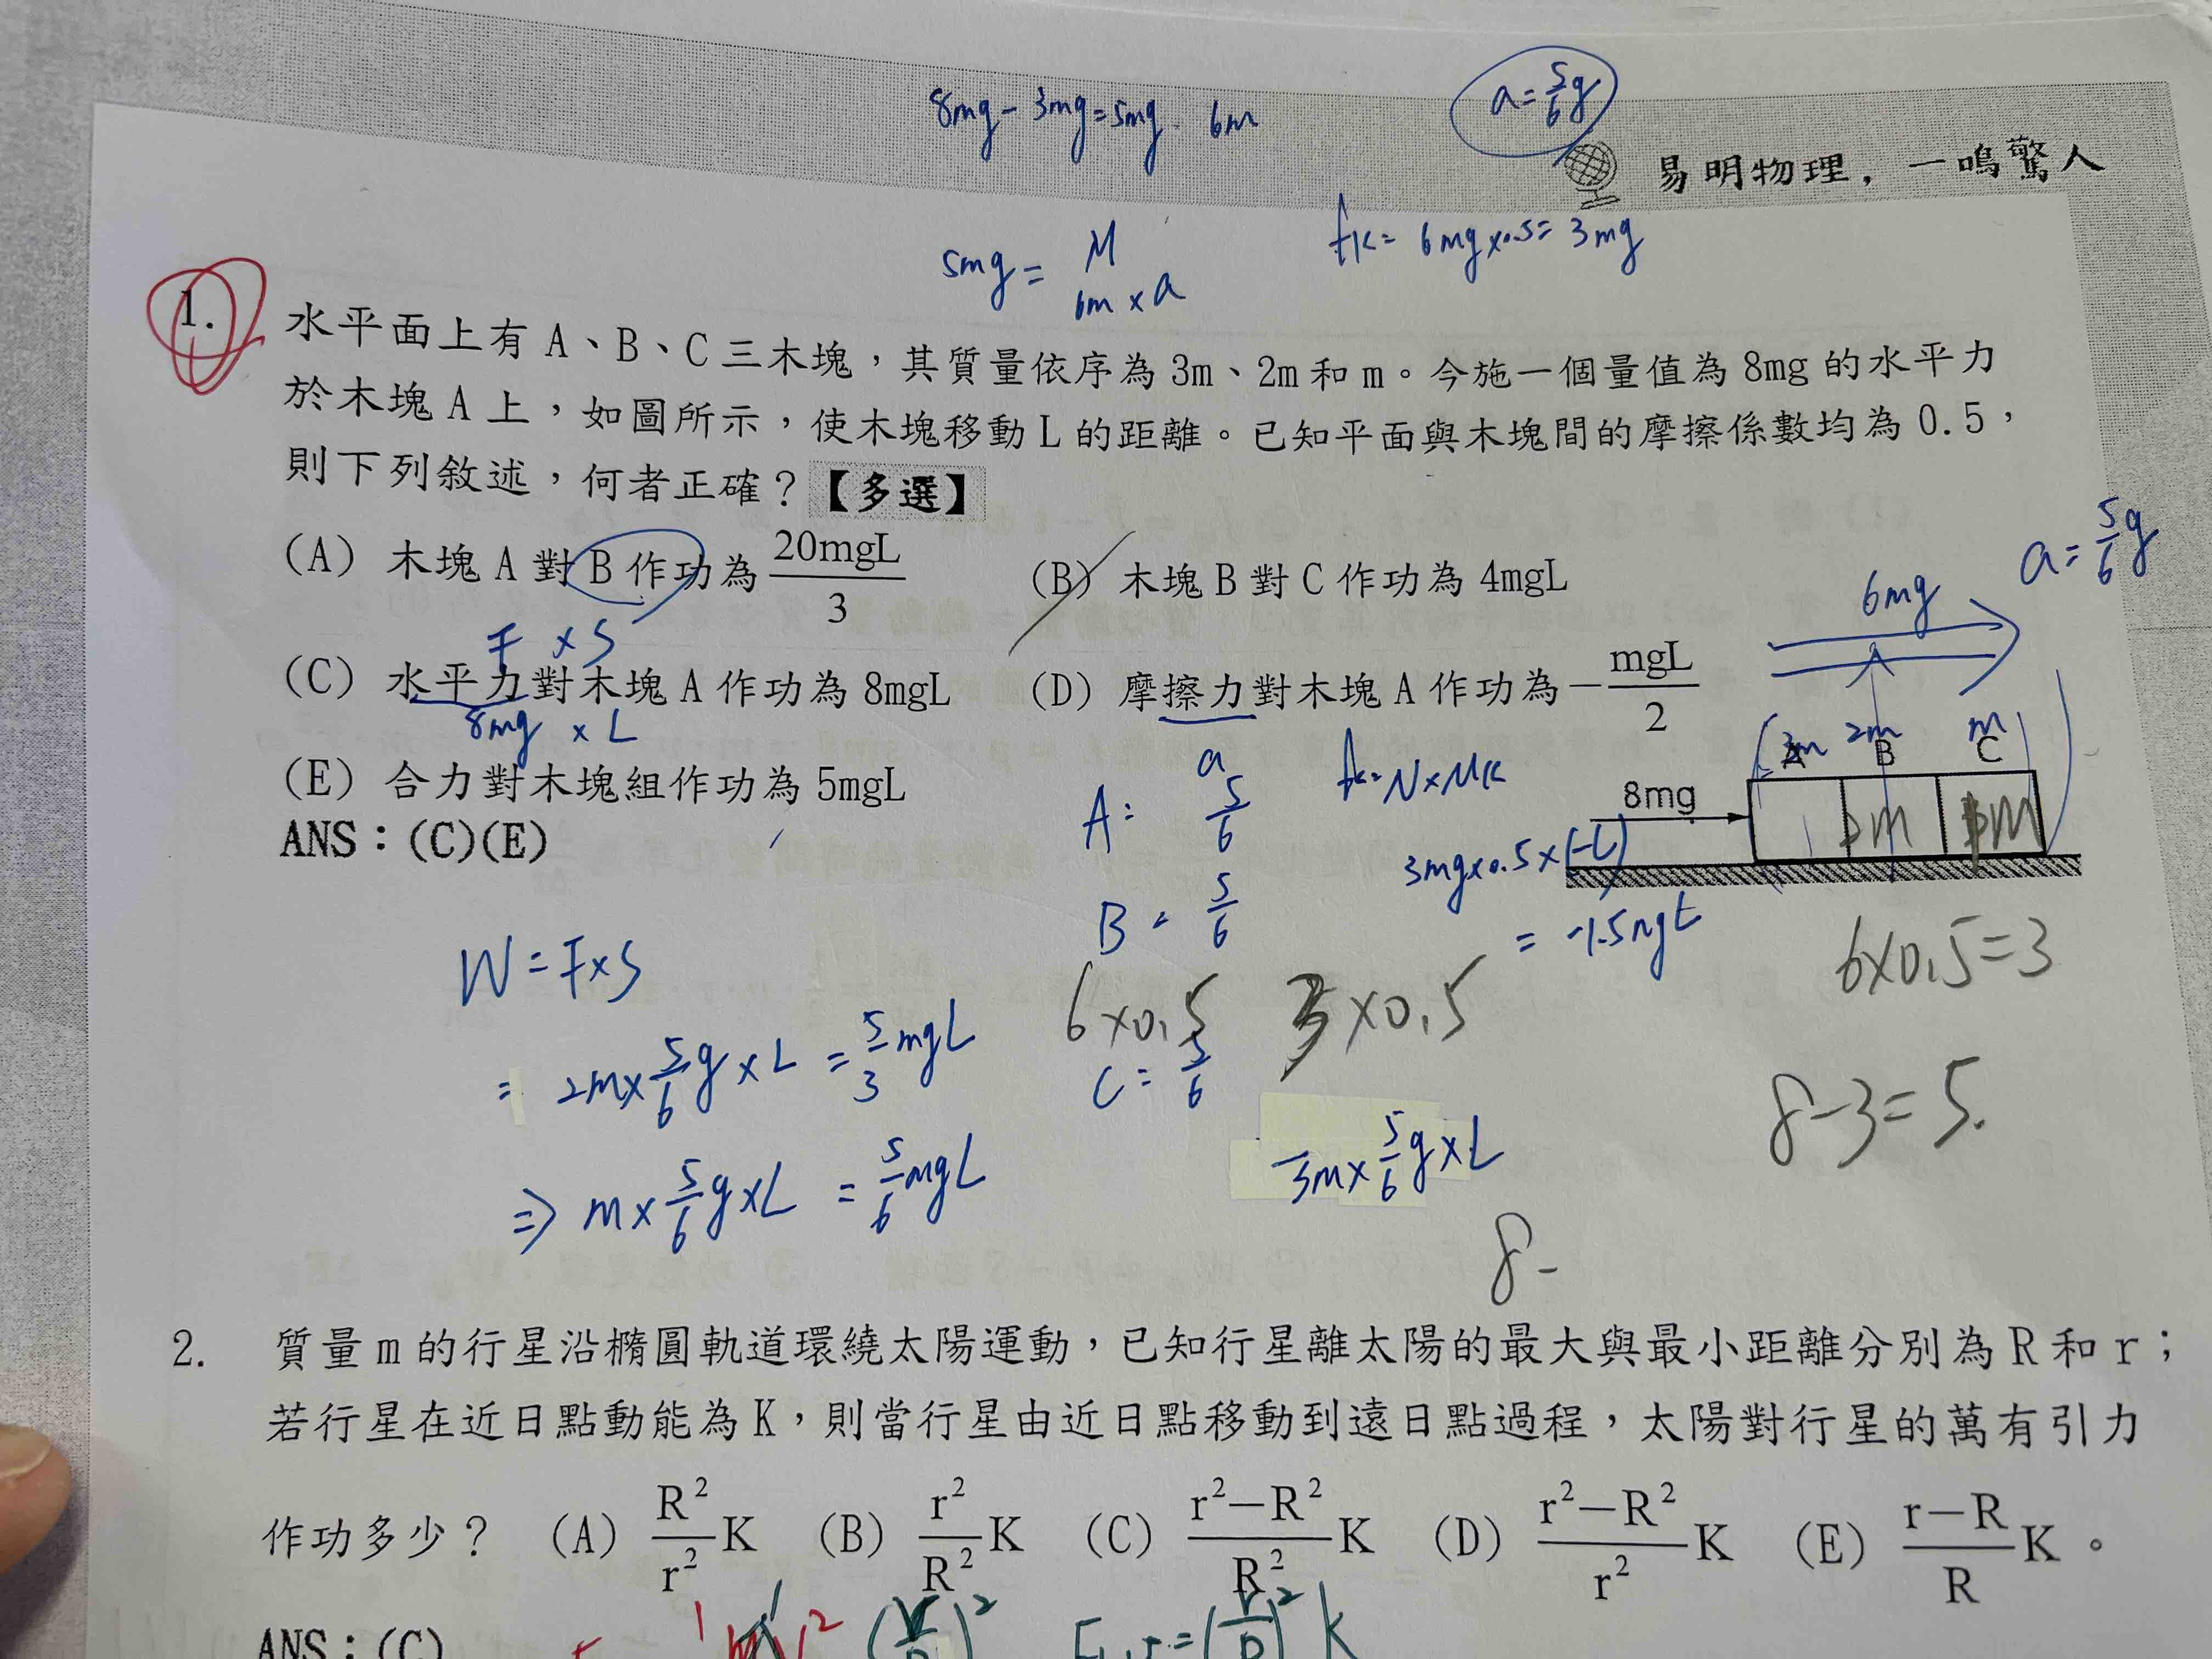 8mg - 3mg = 5mg 6m
a = 5/6 g
易明物理，一鳴驚人
5mg = M
6m × a
fk = 6mg × 0.5 = 3mg
1. 水平面上有 A、B、C 三木塊，其質量依序為 3m、2m 和 m。今施一個量值為 8mg 的水平力
於木塊 A 上，如圖所示，使木塊移動 L 的距離。已知平面與木塊間的摩擦係數均為 0.5，
則下列敘述，何者正確？【多選】
(A) 木塊 A 對 B 作功為 20mgL/3 (B) 木塊 B 對 C 作功為 4mgL
F × S
(C) 水平力對木塊 A 作功為 8mgL (D) 摩擦力對木塊 A 作功為 −mgL/2
8mg × L
(E) 合力對木塊組作功為 5mgL
ANS：(C)(E)
a = 5/6 g
6mg
3m 2m m
A B C
8mg
2m m
a
A: 5/6
B = 5/6
C = 5/6
fk = N × Mk
3mg × 0.5 × (-L)
= -1.5mgL
W = F × S
= 2m × 5/6 g × L = 5/3 mgL
⇒ m × 5/6 g × L = 5/6 mgL
6×0.5
3×0.5
6×0.5=3
8-3=5.
3m × 5/6 g × L
8-
2. 質量 m 的行星沿橢圓軌道環繞太陽運動，已知行星離太陽的最大與最小距離分別為 R 和 r；
若行星在近日點動能為 K，則當行星由近日點移動到遠日點過程，太陽對行星的萬有引力
作功多少？ (A) R²/r² K (B) r²/R² K (C) r²−R²/R² K (D) r²−R²/r² K (E) r−R/R K。
ANS：(C)